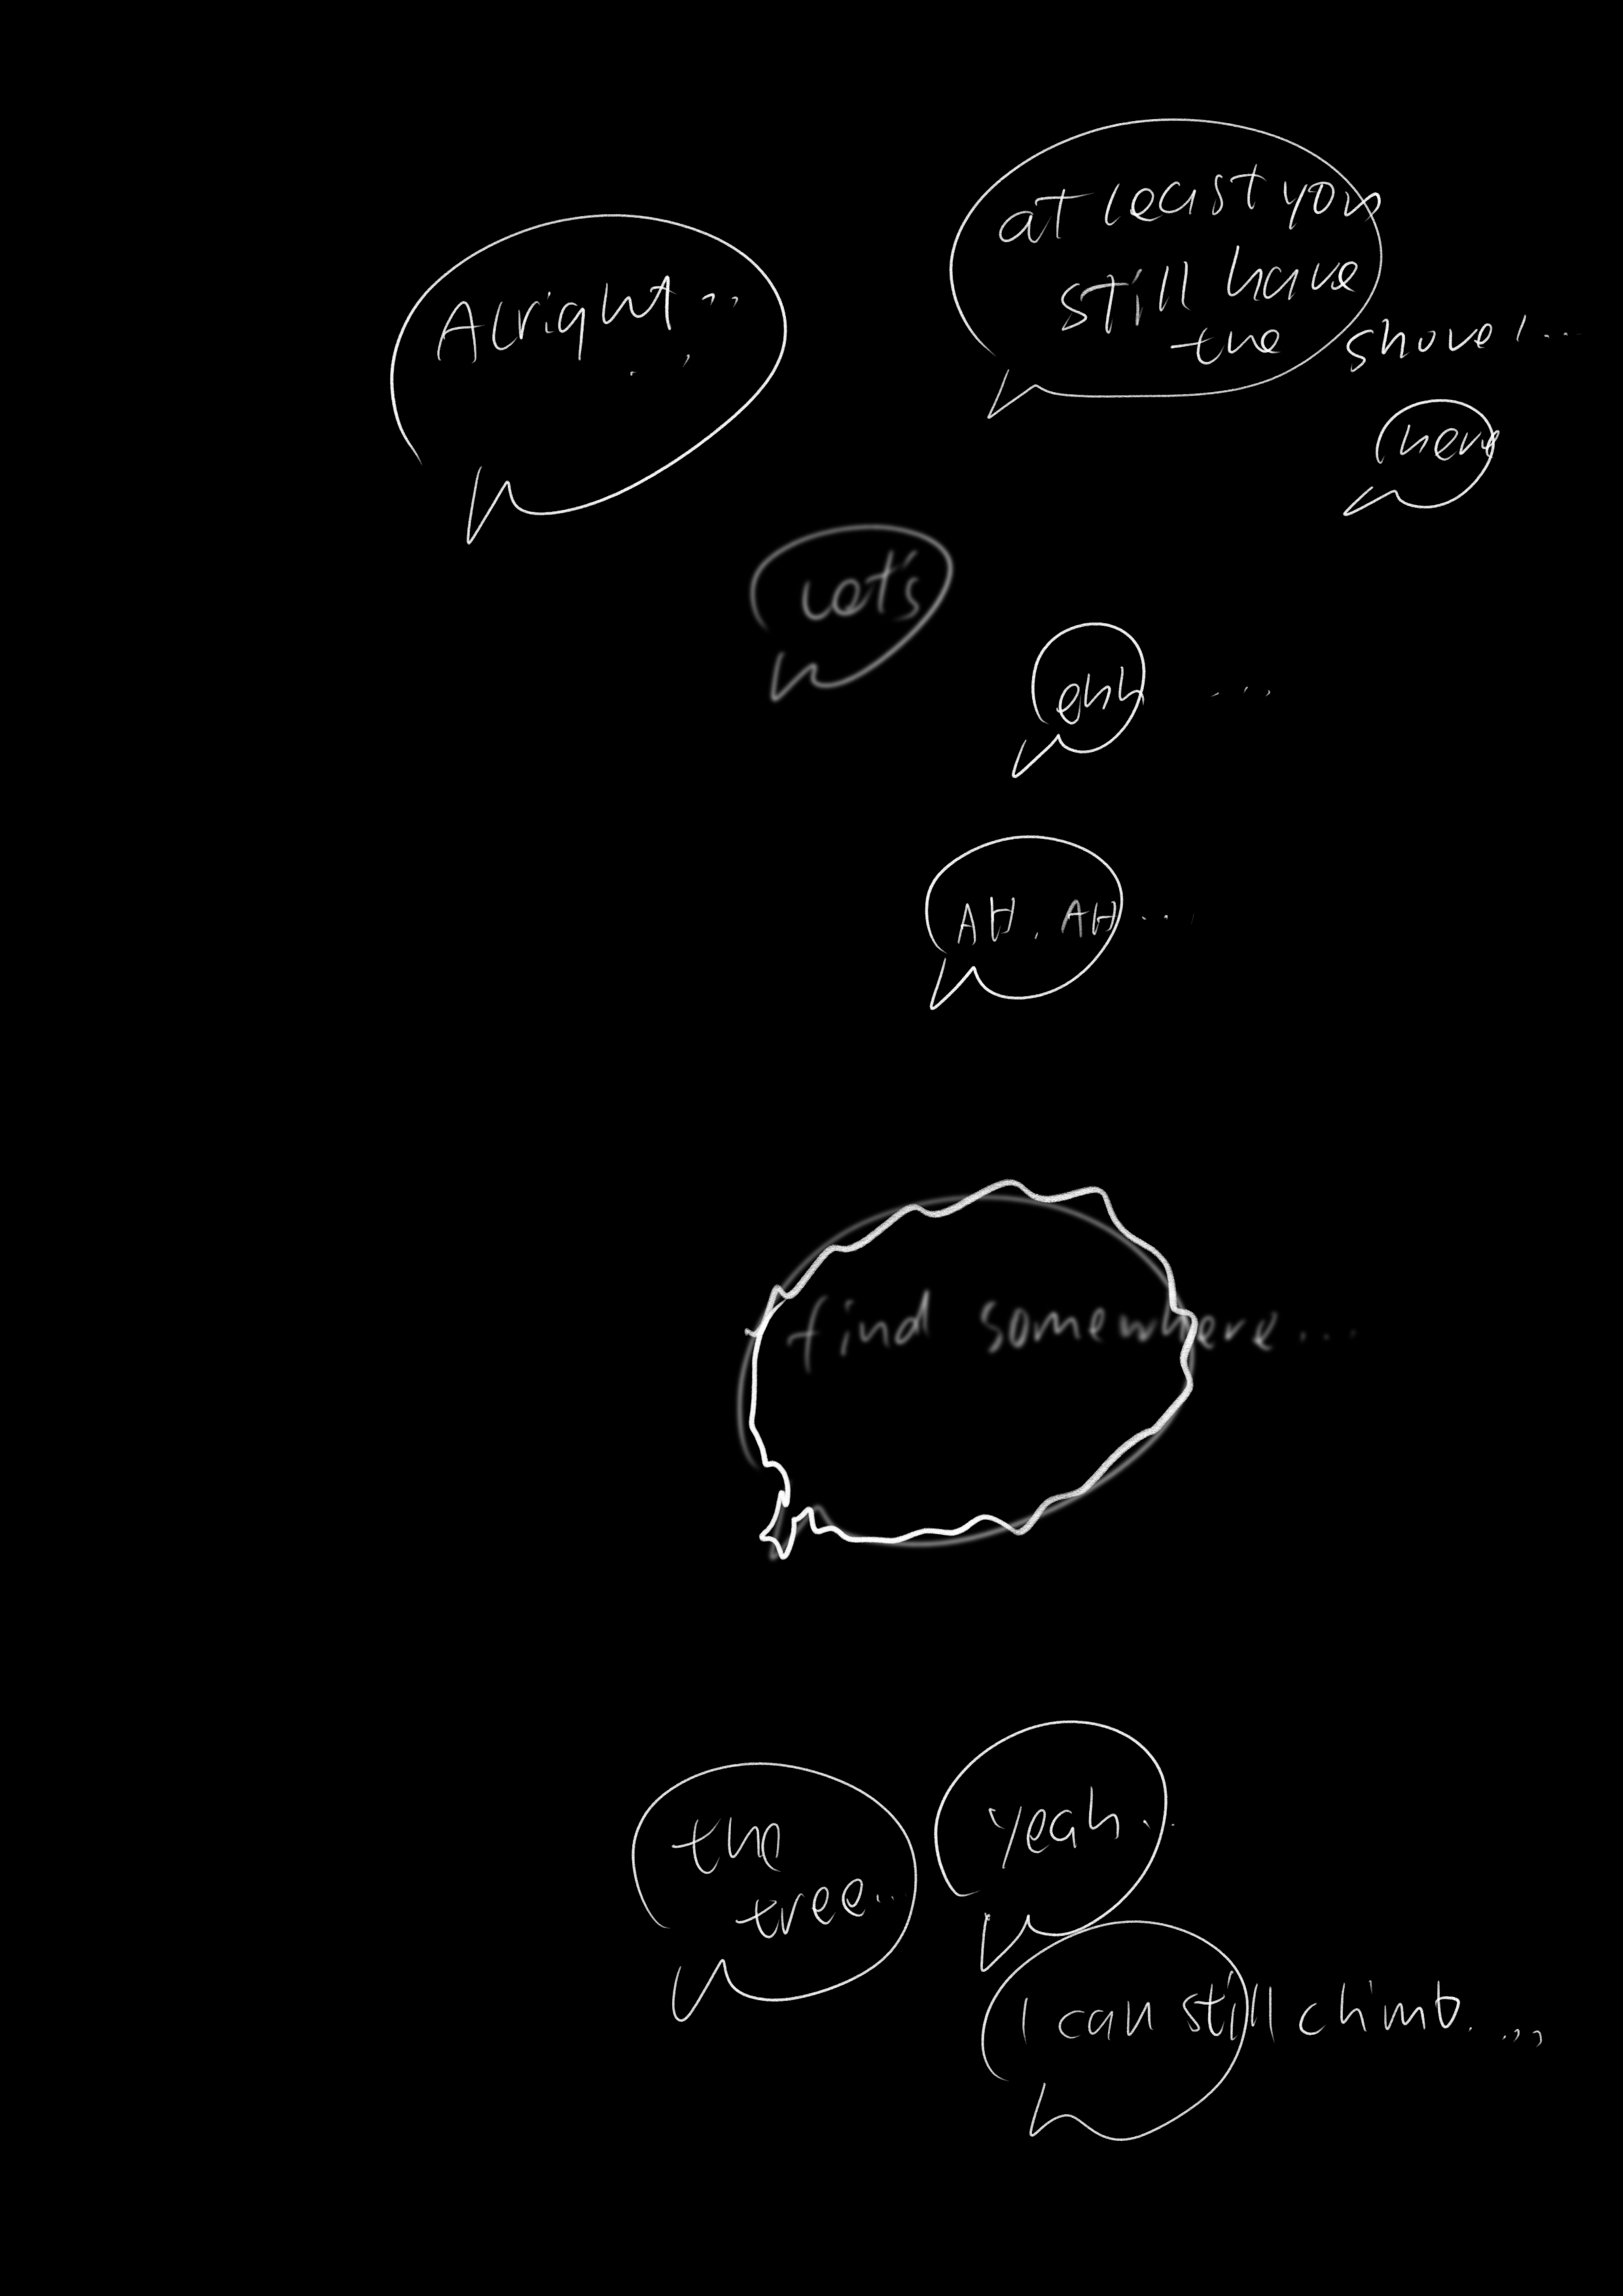 Alright...
at least you
still have
the shovel...
here
Let's
ehh ...
AH, AH...
find somewhere...
the
tree...
Yeah..
I can still climb....